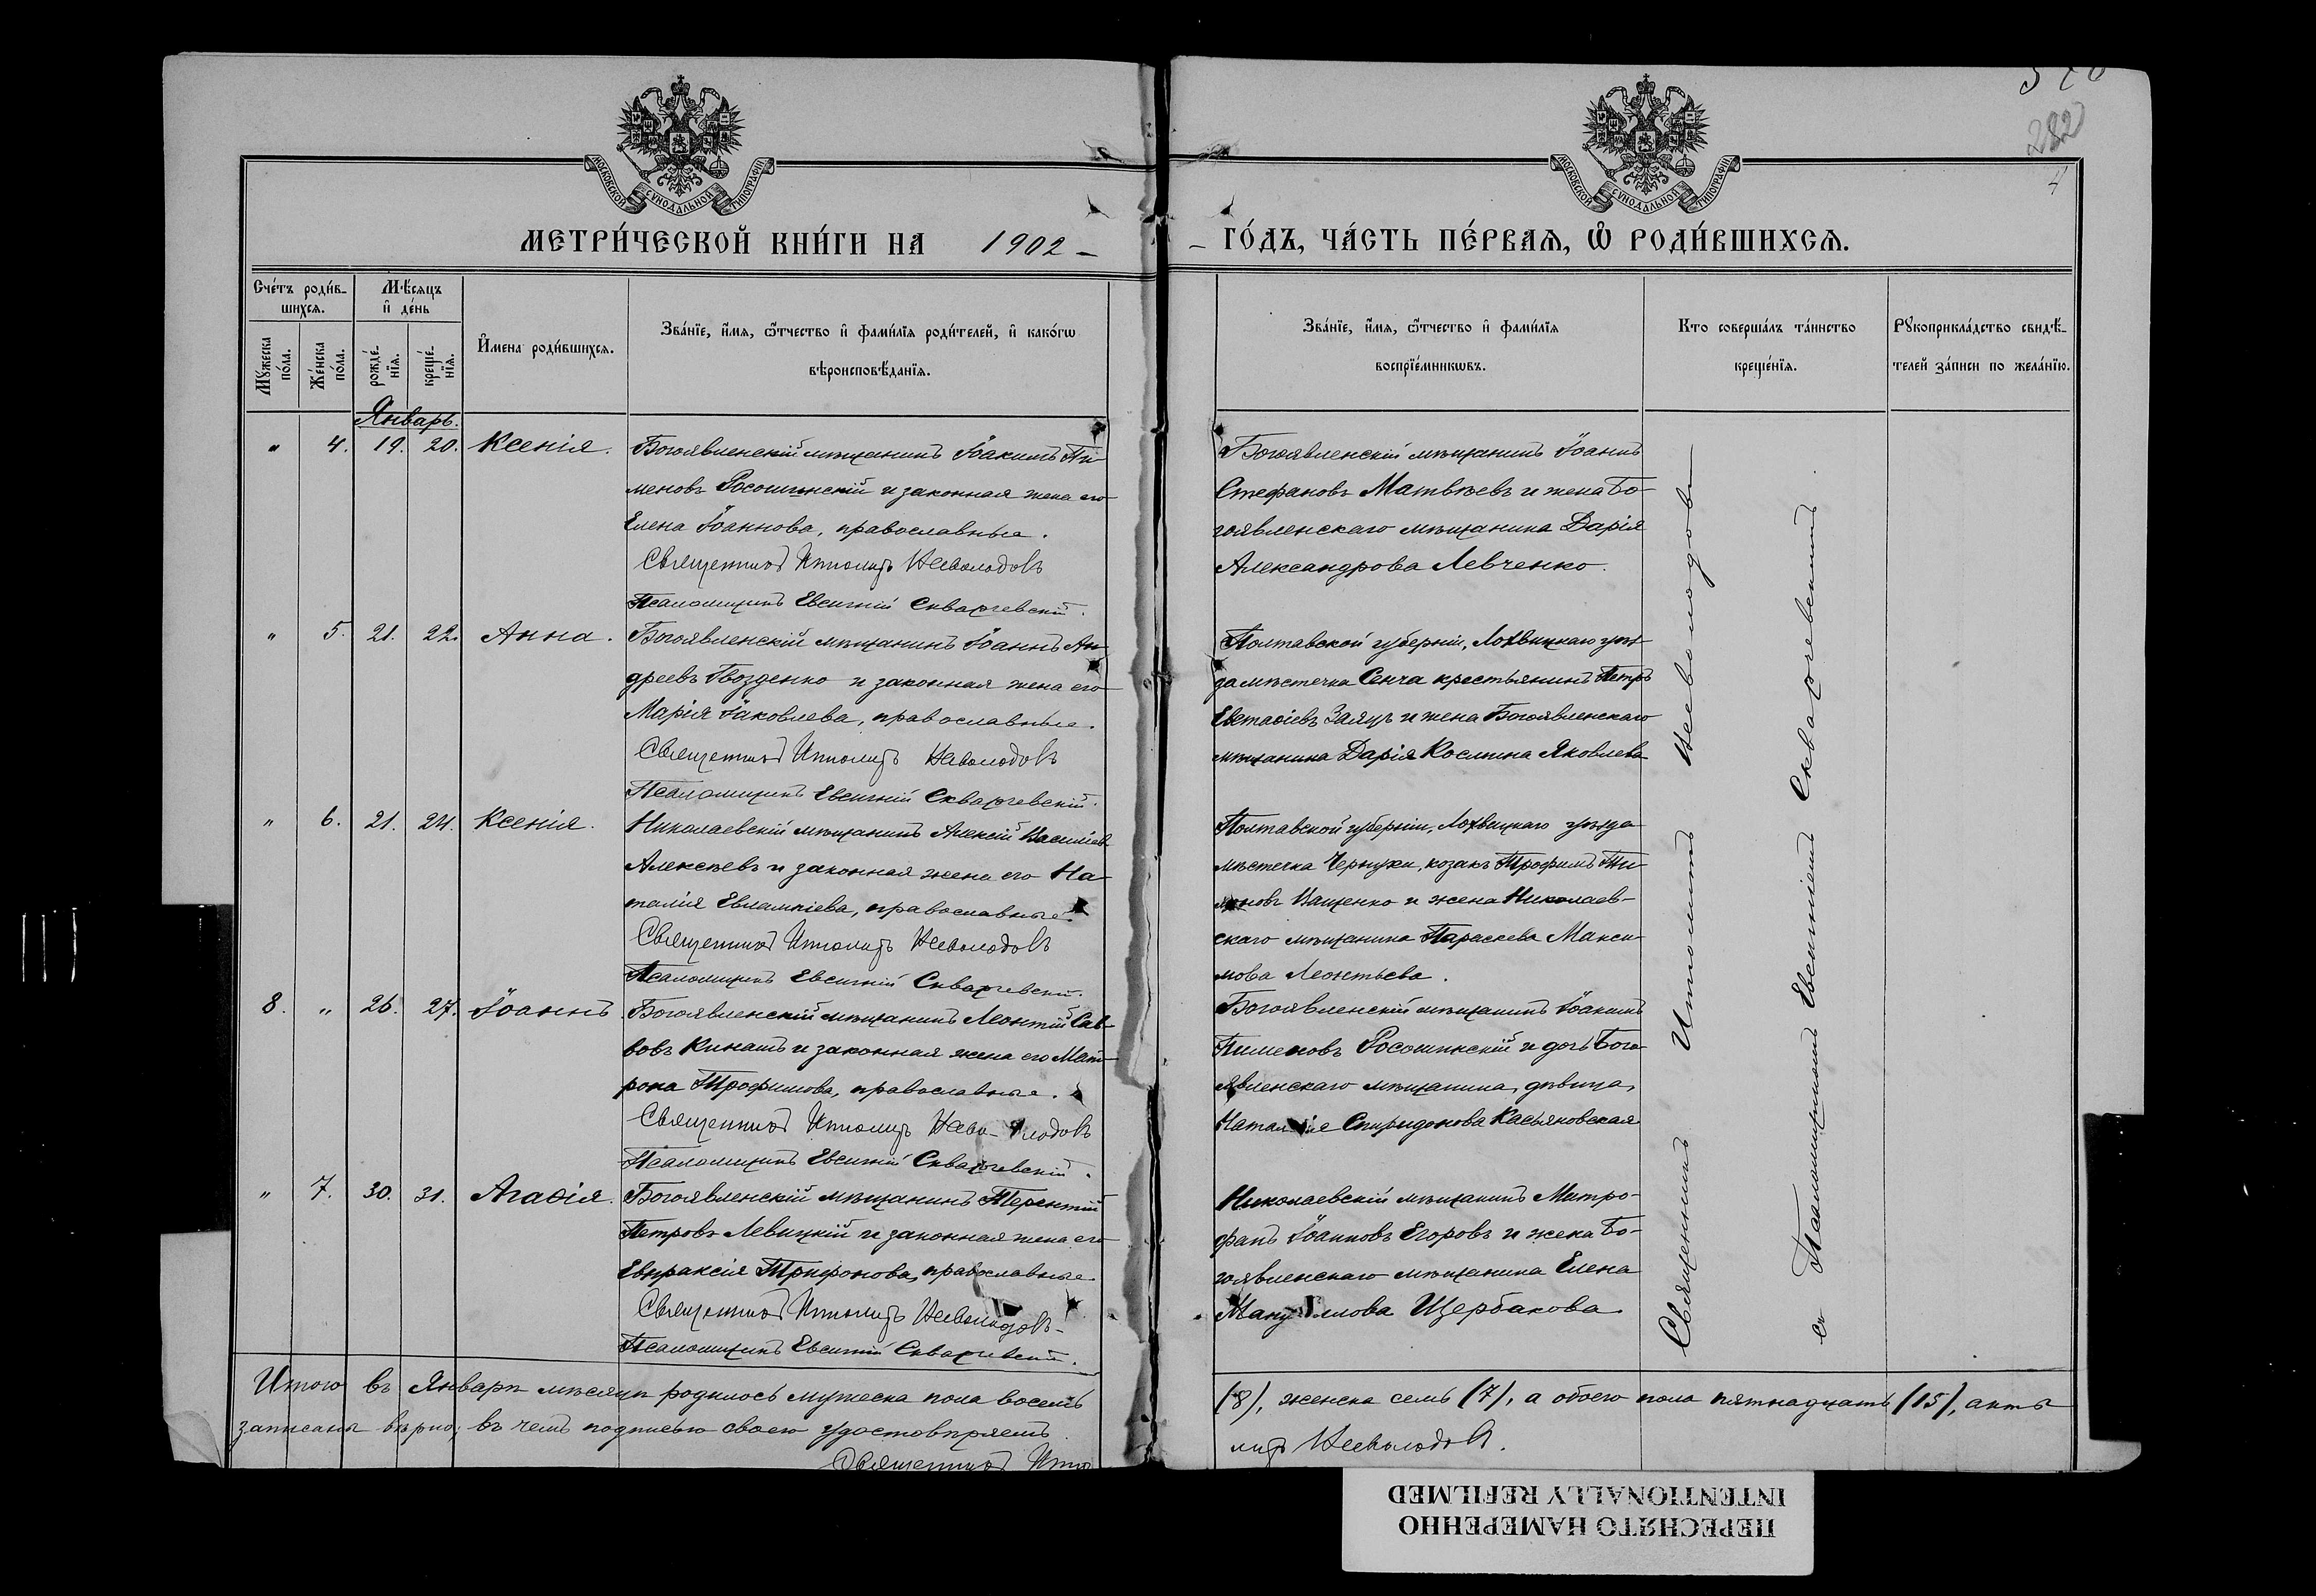 370
282
4
МОСКОВСКОЙ СѴНОДАЛЬНОЙ ТИПОГРАФІИ
МОСКОВСКОЙ СѴНОДАЛЬНОЙ ТИПОГРАФІИ
МЕТРИ́ЧЕСКОЙ КНИ́ГИ НА 1902 –
– ГО́ДЪ, ЧА́СТЬ ПЕ́РВАЯ, Ѽ РОДИ́ВШИХСЯ.
Сче́тъ роди́в-
шихся.
Мѣ́сяцъ
и҆ де́нь
Мꙋ́жеска по́ла.
Же́нска по́ла.
рожде́-нїя.
креще́-нїя.
И҆мена̀ роди́вшихся.
Зва́нїе, и҆́мя, ѻ҆́тчество и҆ фами́лїя роди́телей, и҆ како́гѡ
вѣроисповѣ́данїя.
Зва́нїе, и҆́мя, ѻ҆́тчество и҆ фами́лїя
воспрїе́мникѡвъ.
Кто̀ соверша́лъ та́инство
креще́нїя.
Рꙋкоприкла́дство свидѣ́-
телей за́писи по жела́нїю.
Январь.
" 4. 19. 20. Ксенія.
Богоявленскій мѣщанинъ Іоакимъ Пи-
меновъ Росошинскій и законная жена его
Елена Іоаннова, православные.
Священникъ Ипполитъ Неволодовъ
Псаломщикъ Евсигній Скваржевскій.
Богоявленскій мѣщанинъ Іоаннъ
Стефановъ Матвѣевъ и жена Бо-
гоявленскаго мѣщанина Дарія
Александрова Левченко.
" 5. 21. 22. Анна.
Богоявленскій мѣщанинъ Іоаннъ Ан-
дреевъ Гвозденко и законная жена его
Марія Іаковлева, православные.
Священникъ Ипполитъ Неволодовъ
Псаломщикъ Евсигній Скваржевскій.
Полтавской губерніи, Лохвицкаго уѣз-
да мѣстечка Сенча крестьянинъ Петръ
Евстаѳіевъ Заяцъ и жена Богоявленскаго
мѣщанина Дарія Космина Яковлева
" 6. 21. 24. Ксенія.
Николаевскій мѣщанинъ Алексій Василіев
Алексѣевъ и законная жена его На-
талія Евлампіева, православные.
Священникъ Ипполитъ Неволодовъ
Псаломщикъ Евсигній Скваржевскій.
Полтавской губерніи, Лохвицкаго уѣзда
мѣстечка Чернухи, козакъ Трофимъ
Иващенко и жена Николаев-
скаго мѣщанина Параскева Макси-
мова Леонтьева.
8. " 26. 27. Іоаннъ.
Богоявленскій мѣщанинъ Леонтій Сав-
вовъ Кинашъ и законная жена его Мат-
рона Трофимова, православные.
Священникъ Ипполитъ Нево-лодовъ
Псаломщикъ Евсигній Скваржевскій.
Богоявленскій мѣщанинъ Іоакимъ
Пименовъ Росошинскій и дочь Бого-
явленскаго мѣщанина, дѣвица,
Наталія Спиридонова Касьяновская
" 7. 30. 31. Агаѳія.
Богоявленскій мѣщанинъ Терентій
Петровъ Левицкій и законная жена его
Евпраксія Трифонова, православные.
Священникъ Ипполитъ Неволодовъ-
Псаломщикъ Евсигній Скваржевскій.
Николаевскій мѣщанинъ Митро-
фанъ Іоанновъ Егоровъ и жена Бо-
гоявленскаго мѣщанина Елена
Мануилова Щербакова.
Священникъ Ипполитъ Неволодовъ
съ Псаломщикомъ Евсигніемъ Скваржевскимъ.
Итого въ Январѣ мѣсяцѣ родилось мужеска пола восемь
(8), женска семь (7), а обоего пола пятнадцать (15), акты
записаны вѣрно; въ чемъ подписью своею удостовѣряетъ
Священникъ Иппо
литъ Неволодовъ.
ПЕРЕСНЯТО НАМЕРЕННО
INTENTIONALLY REFILMED